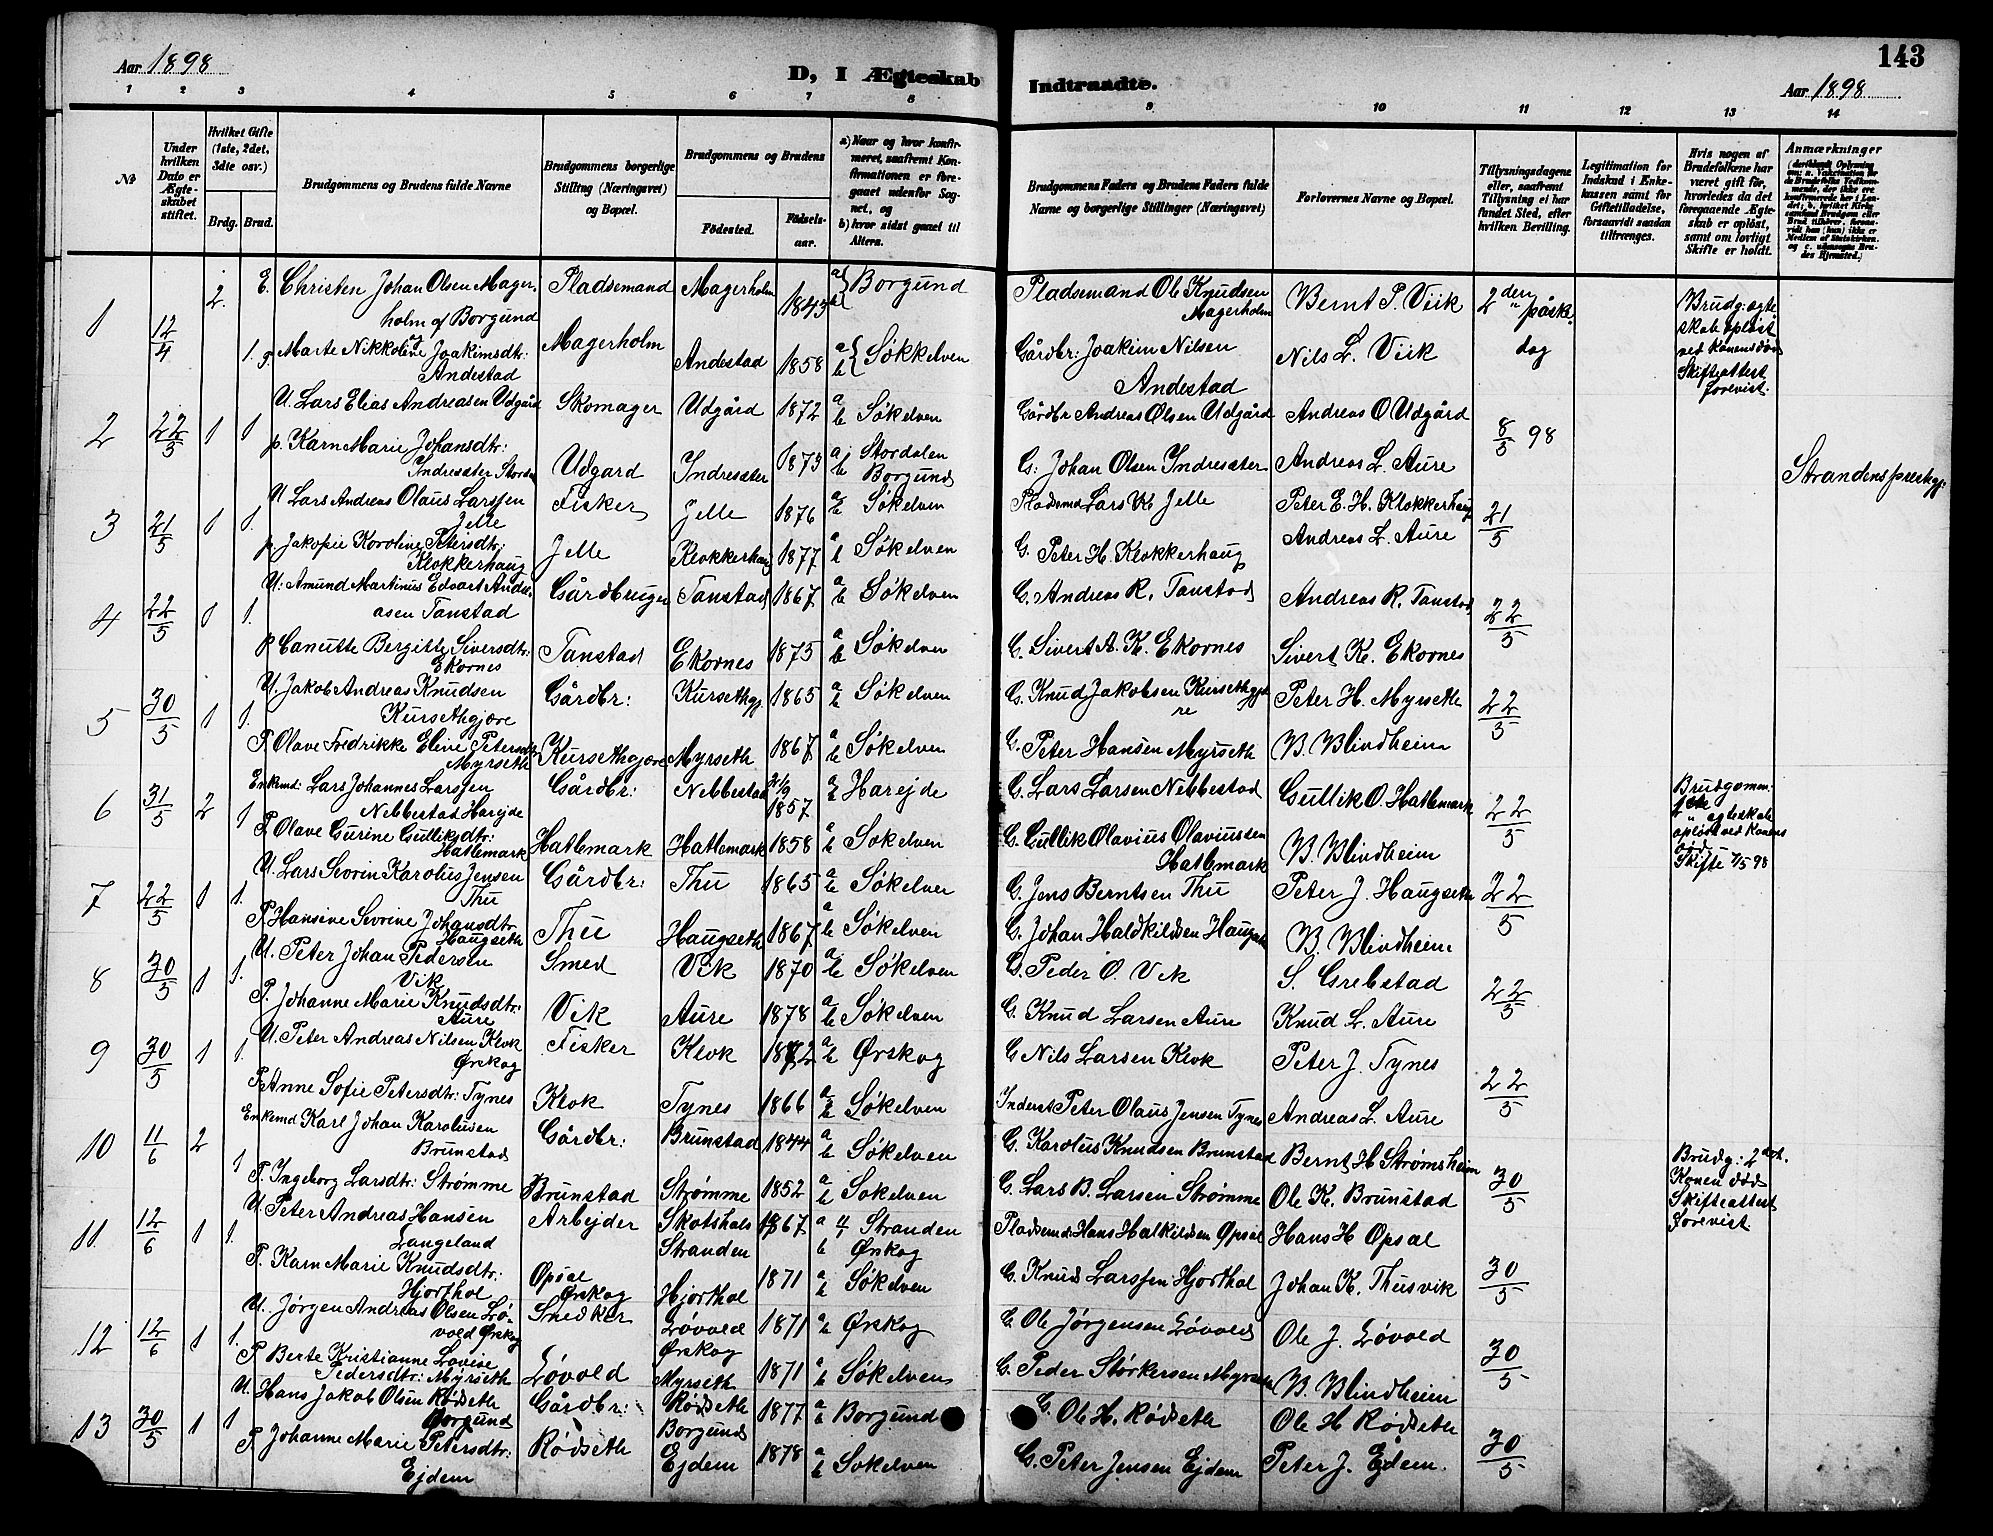 143
Aar 1898
D, I Ægteskab Indtraadte.
Aar 1898
1 2 3 4 5 6 7 8 9 10 11 12 13 14
№
Under hvilken Dato er Ægteskabet stiftet.
Hvilket Gifte (1ste, 2det, 3die osv.)
Brdg. Brud.
Brudgommens og Brudens fulde Navne
Brudgommens borgerlige Stilling (Næringsvei) og Bopæl.
Brudgommens og Brudens
Födested. Födselsaar.
a) Naar og hvor konfirmeret, saafremt Konfirmationen er foregaaet udenfor Sognet, og
b) hvor sidst gaaet til Alters.
Brudgommens Faders og Brudens Faders fulde Navne og borgerlige Stillinger (Næringsvei)
Forlovernes Navne og Bopæl.
Tillysningsdagene eller, saafremt Tillysning ei har fundet Sted, efter hvilken Bevilling.
Legitimation for Indskud i Enkekassen samt for Giftetilladelse, forsaavidt saadan tiltrænges.
Hvis nogen af Brudefolkene har været gift för, hvorledes da det foregaaende Ægteskab er oplöst, samt om lovligt Skifte er holdt.
Anmærkninger
1 12/4 2. E. Christen Johan Olsen Magerholm af Borgund Pladsemand Magerholm 1843 a b Borgund Pladsemand Ole Knudsen Magerholm Bernt P. Viik 2den påskedag Brudg: ægteskab opløst ved Konens død Skifteattest forevist.
1. p. Marte Nikkoline Joakimsdtr: Andestad Magerholm Andestad 1858 a b Søkkelven Gårdbr: Joakim Nilsen Andestad Nils L. Viik
2 22/5 1 1 U. Lars Elias Andreasen Udgård Skomager Udgård 1872 a b Søkelven Gårdbr Andreas Olsen Udgård Andreas O Udgård 8/5 98
p. Karn Marie Johansdtr: Indresæter Udgard Indresæter 1873 a Stordalen b Borgund G: Johan Olsen Indresæter Andreas L. Aure Strandens prestgj:
3 21/5 1 1. U Lars Andreas Olaus Larssen Jelle Fisker Jelle 1876 a b Søkelven Pladsemd Lars K Jelle Peter E. H. Klokkerhaug 21/5
p. Jakopie Karoline Petersdtr: Klokkerhaug Jelle Klokkerhaug 1877 a b Søkelven G. Peter H. Klokkerhaug Andreas L. Aure
4 22/5 1 1. U: Amund Martinus Edvart Andreasen Tanstad Gårdbruger Tanstad 1867 a b Søkelven G. Andreas R. Tanstad Andreas R. Tanstad 22/5
P Canutte Bergitte Siversdtr: Ekornes Tanstad Ekornes 1875 a b Søkelven G. Sivert A. K. Ekornes Sivert K. Ekornes
5 30/5 1 1. U. Jakob Andreas Knudsen Kursethgjøre Gårdbr: Kursethgj. 1865 a b Søkelven G. Knud Jakobsen Kursethgjøre Peter H. Myrseth 22/5
P. Olave Fredrikke Eline Petersdtr Myrseth Kursethgjøre Myrseth 1867 a b Søkelven G. Peter Hansen Myrseth B. Blindheim
6 31/5 2 1 Enkemd: Lars Johannes Larssen Nebbestad Harejde Gårdbr: Nebbestad 1857 a b Harejde G. Lars Larsen Nebbestad Gullik O. Hatlemark 22/5 Brudgommens ægteskab opløst ved Konens død – Skifte 7/5 98
P. Olave Gurine Gulliksdtr: Hatlemark Hatlemark Hatlemark 1858 a b Søkelven G. Gullik Olavius Olaviussen Hatlemark B. Blindheim
7 22/5 1 1. U. Lars Sevrin Karolius Jensen Thu Gårdbr: Thu 1865 a b Søkelven G. Jens Berntsen Thu Peter J. Haugseth 22/5
P. Hansine Sevrine Johansdtr Haugseth Thu Haugseth 1867 a b Søkelven G. Johan Haldkildsen Haugseth B. Blindheim
8 30/5 1 1. U. Peter Johan Pedersen Vik Smed Vik 1870 a b Søkelven G. Peder O Vik S. Grebstad 22/5
P. Johanne Marie Knudsdtr: Aure Vik Aure 1878 a b Søkelven G. Knud Larsen Aure Knud L. Aure
9 30/5 1 1. U. Peter Andreas Nilsen Klok Ørskog Fisker Klok 1872 a b Ørskog G Nils Larsen Klok Peter J. Tynes 22/5
P. Anne Sofie Petersdtr: Tynes Klok Tynes 1866 a b Søkelven Inderst Peter Olaus Jensen Tynes Andreas L. Aure
10 11/6 2 1 Enkemd Karl Johan Karolusen Brunstad Gårdbr: Brunstad 1844 a b Søkelven G. Karolus Knudsen Brunstad Bernt H Strømsheim 30/5 Brudg: 2 Konen død Skifteattest forevist
P. Ingeborg Larsdtr: Strømme Brunstad Strømme 1852 a b Søkelven G. Lars B. Larsen Strømme Ole K. Brunstad
11. 12/6 1 1. U. Peter Andreas Hansen Langeland Arbejder Skotshals Stranden 1867 a Stranden b Ørskog Pladsemd: Hans Halkildsen Opsal Hans H Opsal 30/5
P. Karn Marie Knudsdtr: Hjorthol Opsal Ørskog Hjorthol 1871 a b Søkelven G. Knud Larssen Hjorthol Johan K. Thusvik
12 12/6 1 1. U. Jørgen Andreas Olsen Løvold Ørskog Snedker Løvold Ørskog 1871 a b Ørskog G. Ole Jørgensen Løvold Ole J. Løvold 30/5
P Berte Kristianne Lovise Pedersdtr: Myrseth Løvold Myrseth 1871 a b Søkelven G. Peder Størkersen Myrseth B. Blindheim
13 30/5 1 1 U. Hans Jakob Olsen Rødseth Borgund Gårdbr: Rødseth Borgund 1877 a b Borgund G. Ole H. Rødseth Ole H Rødseth 30/5
P Johanne Marie Petersdtr: Ejdem Rødseth Ejdem 1878 a b Søkelven G. Peter Jensen Ejdem Peter J. Ejdem.